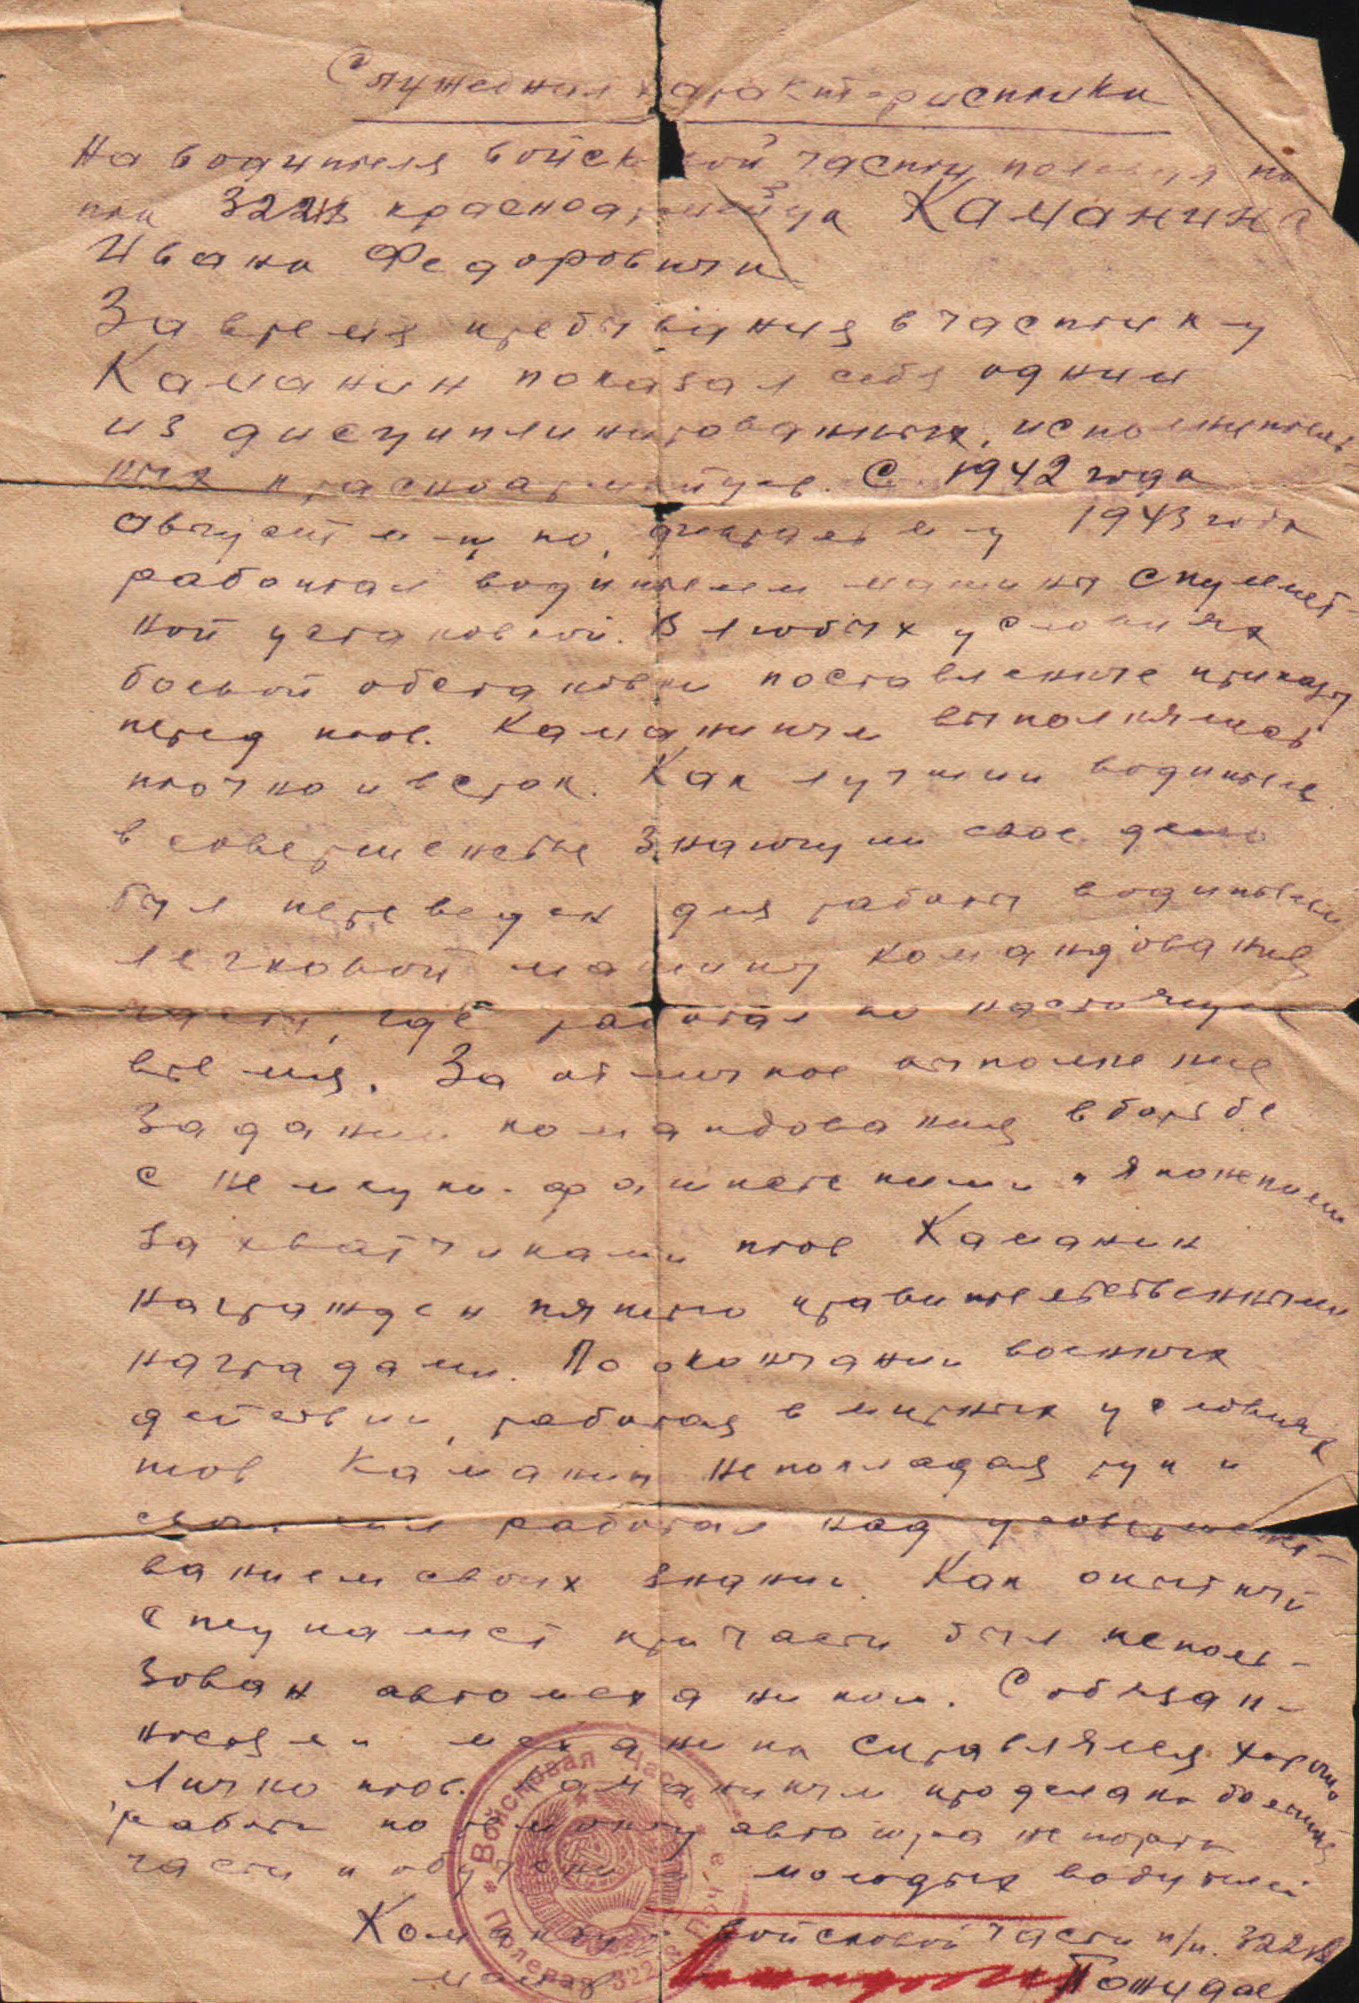 Служебная характеристика
На водителя войсковой части полевая по
чта красноармейца Каманина
Ивана Федоровича
За время пребывания в части к-ц
Каманин показал себя одним
из дисциплинированных, исполнитель
ных красноармейцев. С 1942 года
август м-ц по, м-ц 1943 года
работал водителем машины с пулемет-
ной установкой. В любых условиях
боевой обстановки поставленые приказы
перед тов. Каманиным выполнялись
точно и в срок. Как лучший водитель
в совершенстве знающий свое дело
был переведен для работы водителем
легковой машины командования
части, где работал по настоящее
время. За отличное выполнение
заданий командования в борьбе
с немецко-фашистскими и японскими
захватчиками тов Каманин
награжден пятью правительственными
наградами. По окончании военных
действий, работая в мирных условиях
тов Каманин непокладая рук и
работал над усовершенст-
ванием своих знаний. Как опытный
специалист при части был исполь-
зован автомехаником. С обязан-
ностями механика справлялся хорошо
Лично тов. Каманиным проделана большая
работа по ремонту автотранспорта
части и обучению молодых водителей
Командир войсковой части п/п.
майор
* Войсковая часть * Полевая почта